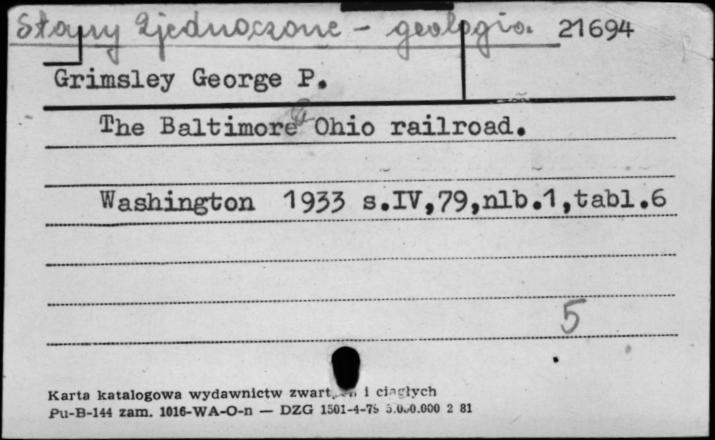 Stany Zjednoczone - geologia. 21694
Grimsley George P.
The Baltimore & Ohio railroad.
Washington 1933 s.IV,79,nlb.1,tabl.6
5
Karta katalogowa wydawnictw i ciągłych
Pu-B-144 zam. 1016-WA-O-n — DZG 1501-4-79 5.000.000 2 81